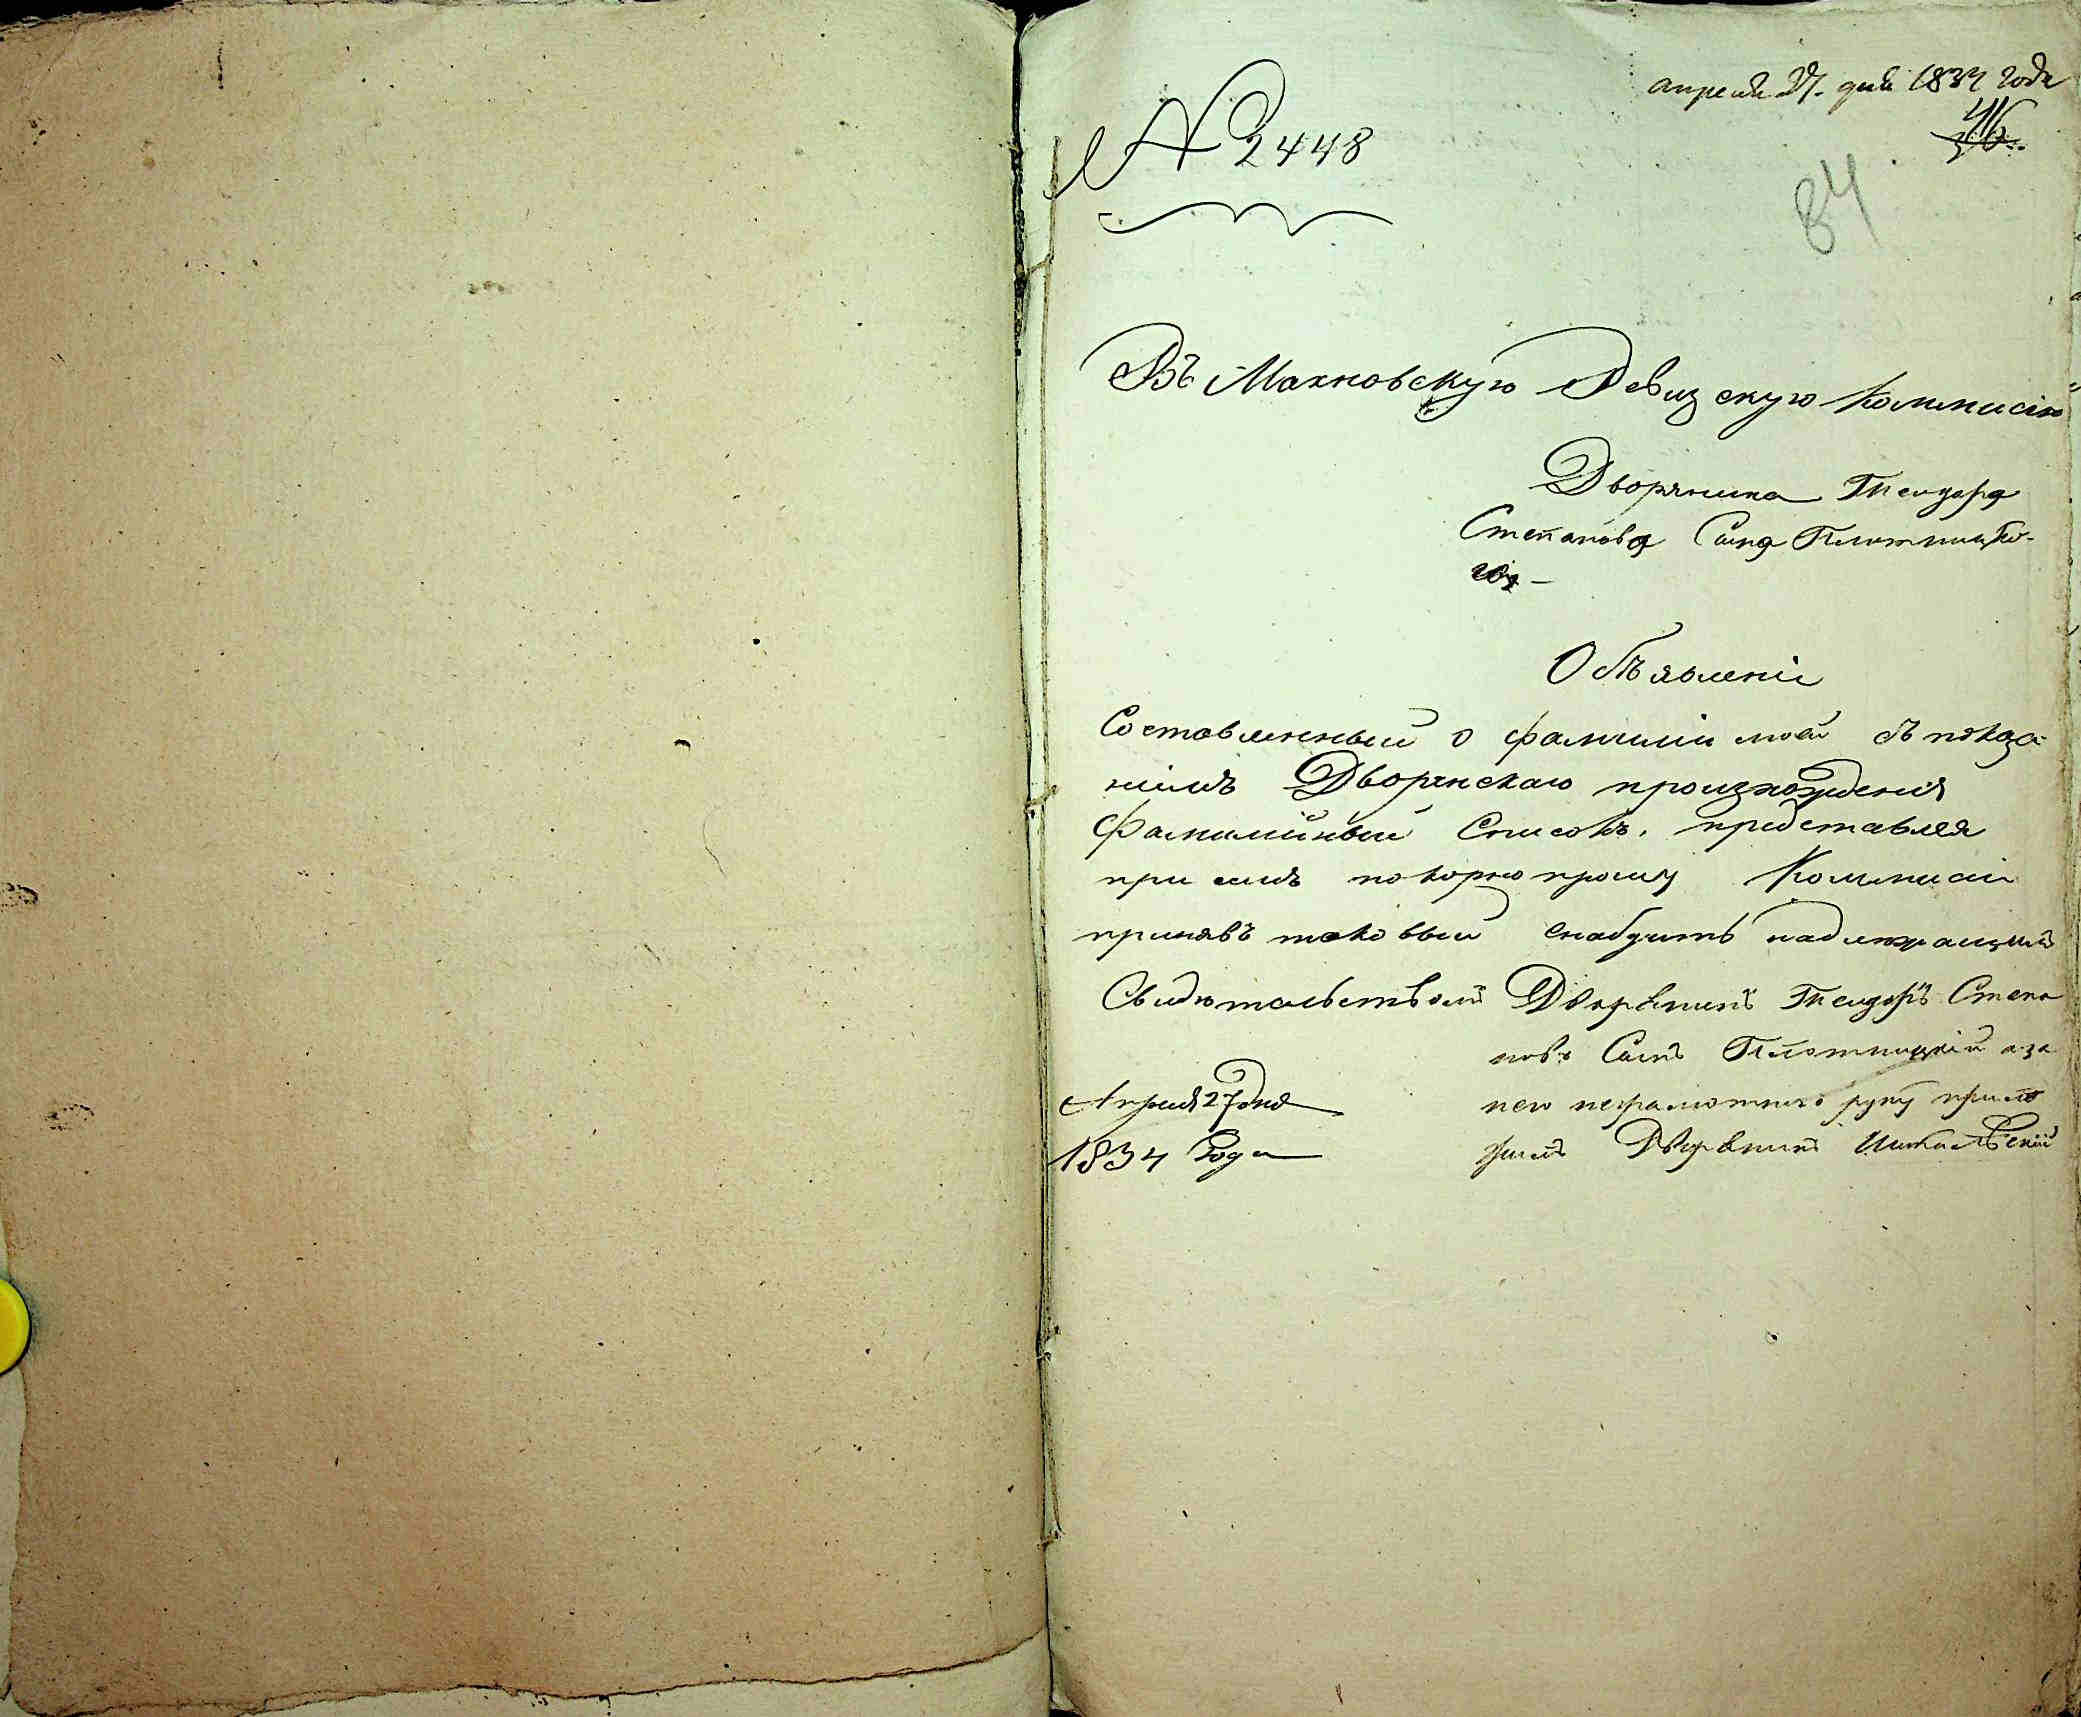 апреля 27. дня 1834 года
№ 2448
84
Въ Махновскую Ревизскую Коммисію
Дворянина Теидора
Степанова Сына Плотницко-
го
Объявленіе
Составленный о фамиліи моей съ показа
ніемъ Дворянскаго произхожденія
Фамилійный Списокъ, представляя
при семъ покорно прошу Коммисіи
принявъ таковый снабдить надлежащимъ
Свидѣтельствомъ Дворянинъ Теидоръ Степа
новъ Сынъ Плотницкій а за
него неграмотнаго руку прило
жилъ Дворянинъ
Апреля 27 дня
1834 Года